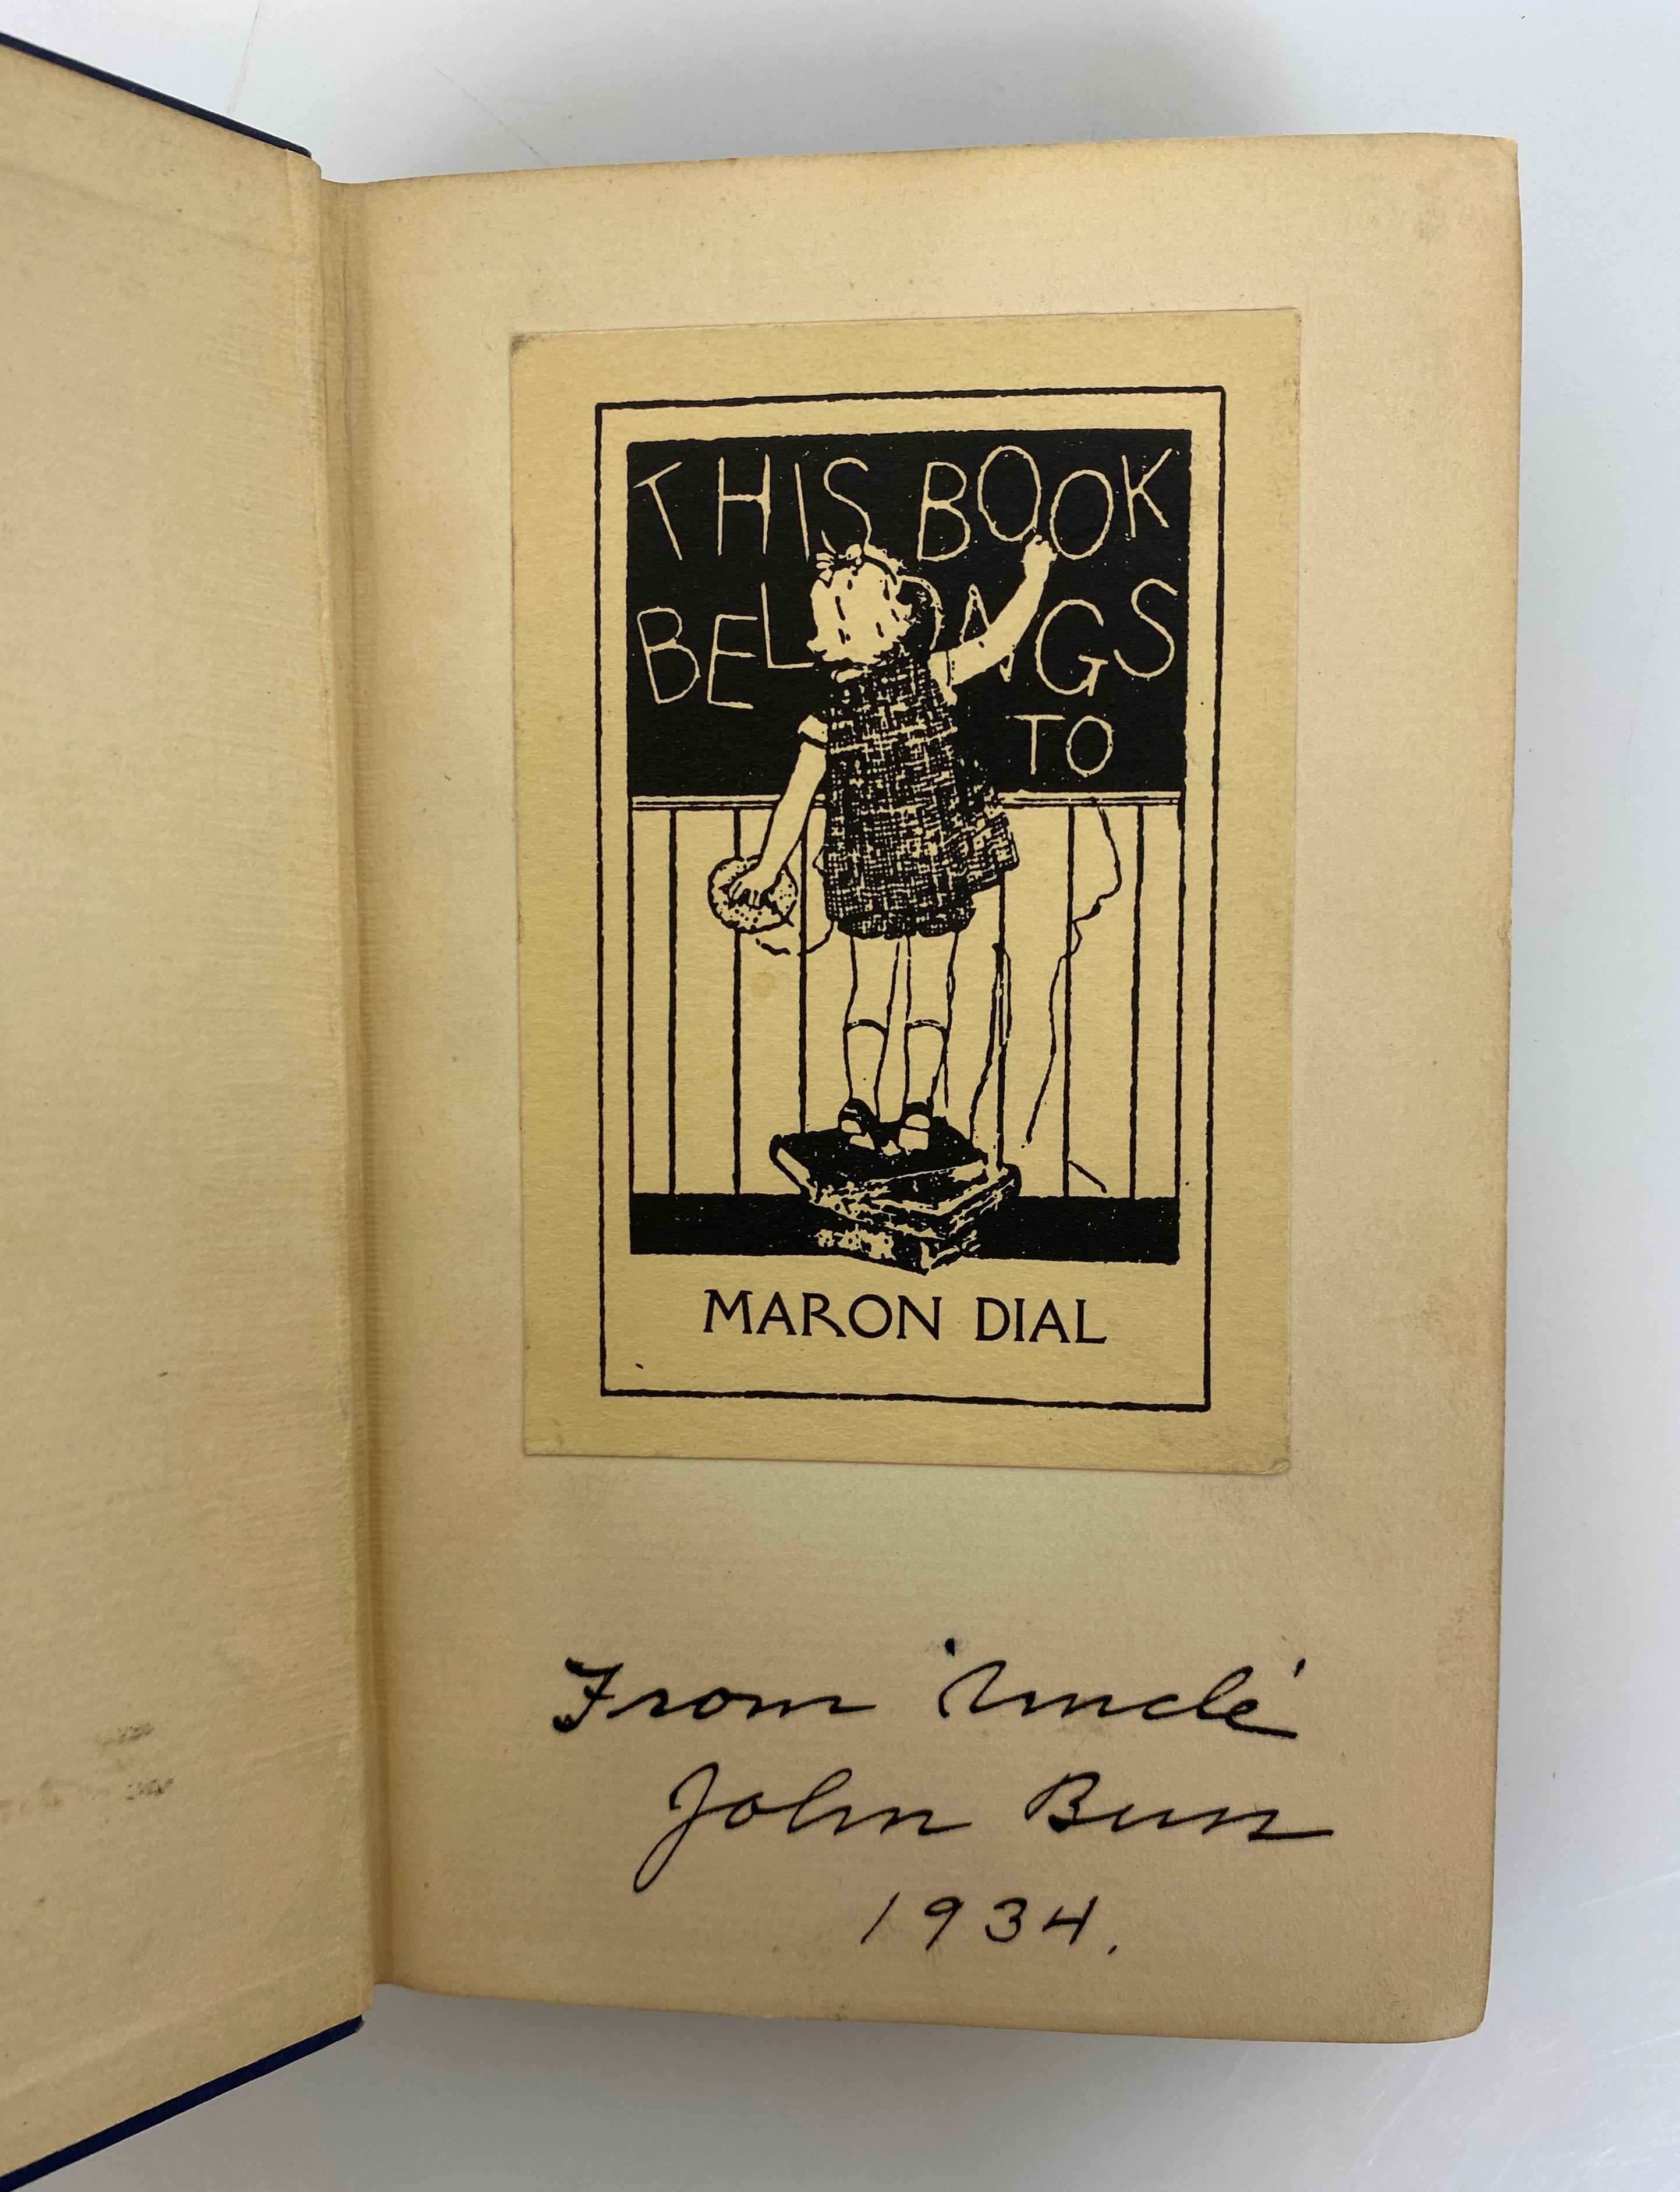 THIS BOOK
BELONGS
TO
MARON DIAL
From 'Uncle'
John Burr
1934.